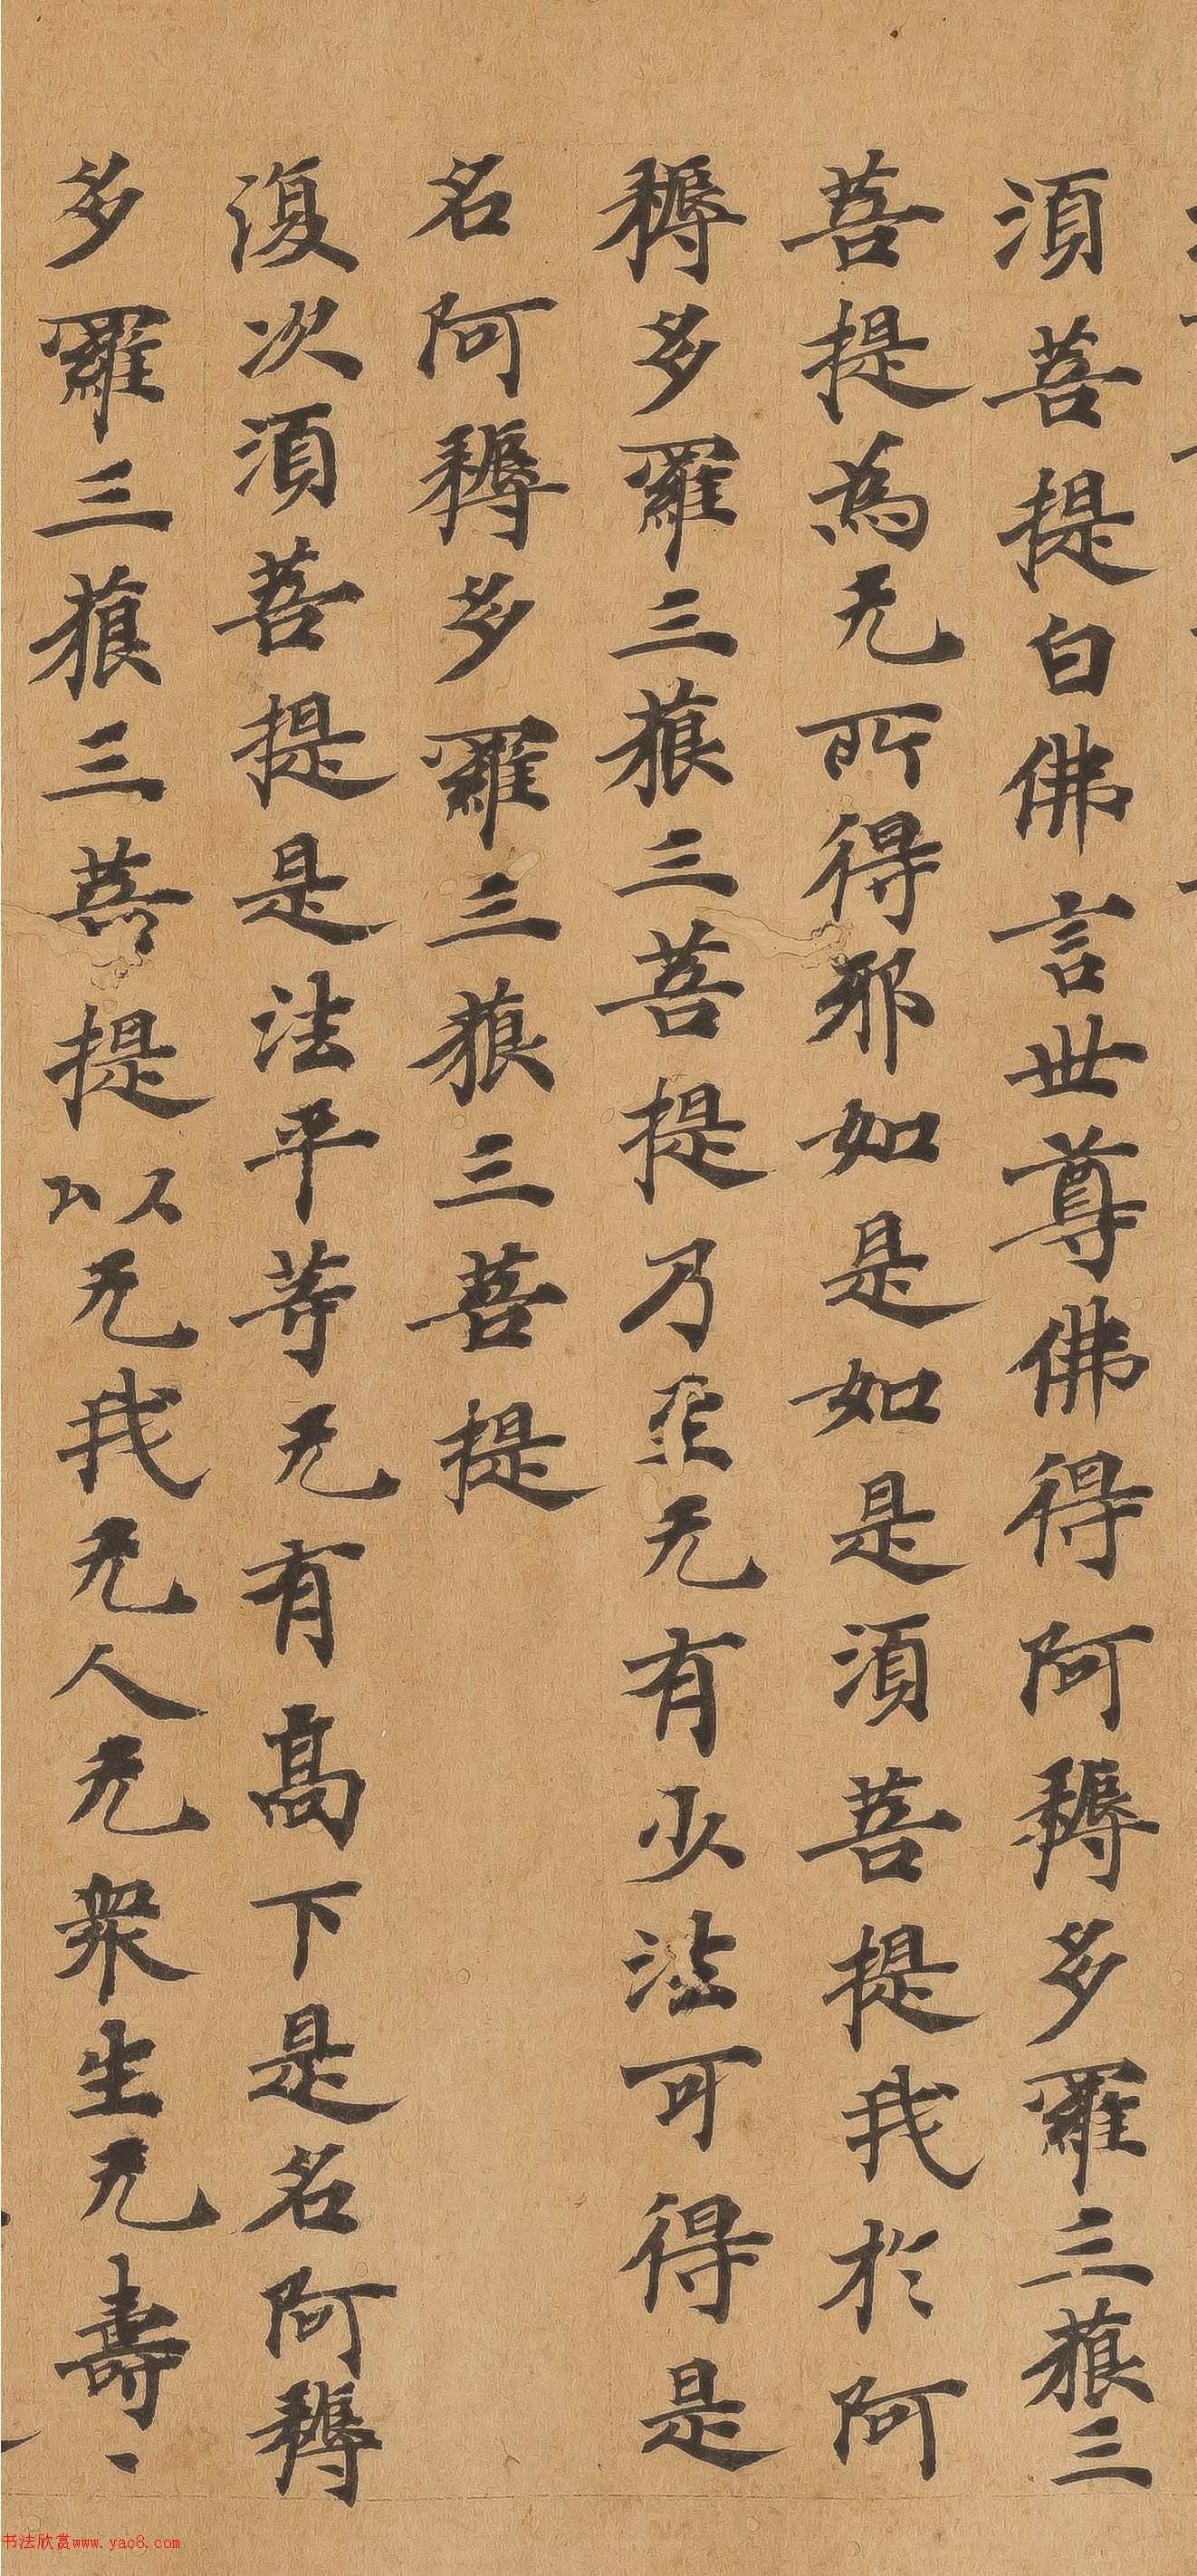 須菩提白佛言世尊佛得阿耨多羅三藐三
菩提為无所得邪如是如是須菩提我於阿
耨多羅三藐三菩提乃至无有少法可得是
名阿耨多羅三藐三菩提
復次須菩提是法平等无有高下是名阿耨
多羅三藐三菩提以无我无人无衆生无壽
书法欣赏www.yac8.com